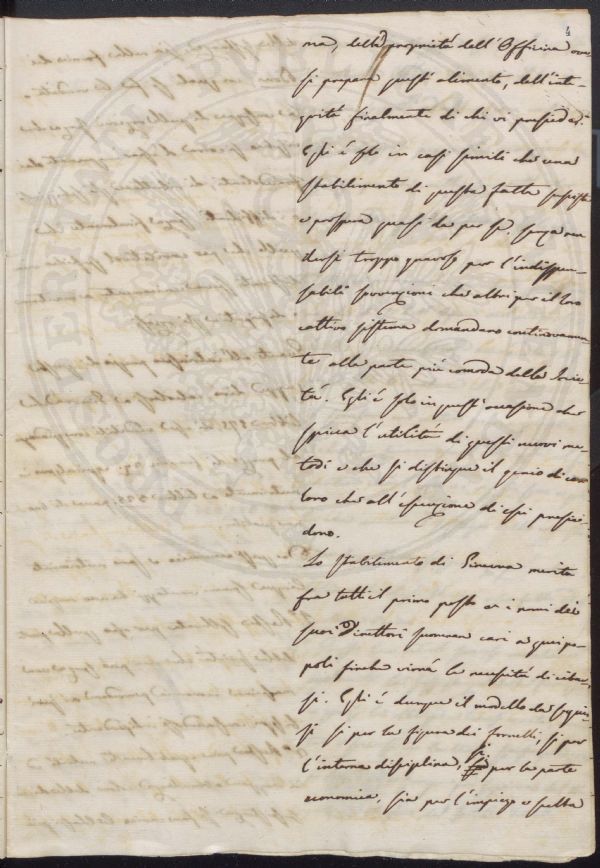 4
ma, della proprietá dell'Officina ove
si prepara quest'alimento, dell'inte-
gritá finalmente di chi vi presiede.
Egli é solo in casi simili che uno
stabilimento di questa fatta sussiste
e prospera quasi da per se, senza ren-
dersi troppo gravoso per l'indispen-
sabili sovvenzioni che altri per il loro
cattivo sistema domandano continovamen-
te alla parte più comoda della Socie-
tá. Egli é solo in quest'occasione che
spicca l'utilitá di questi nuovi me-
todi e che si distingue il genio di co-
loro che all'esecuzione di essi presie-
dono.
Lo stabilimento di Ginevra merita
fra tutti il primo posto e i nomi dei
suoi Direttori saranno cari a quei po-
poli finche vivrá la necessitá di cibar-
si. Egli é dunque il modello da seguir-
si si per la figura dei fornelli, si per
l'interna disciplina, si per la parte
economica, sia per l'impiego e scelta